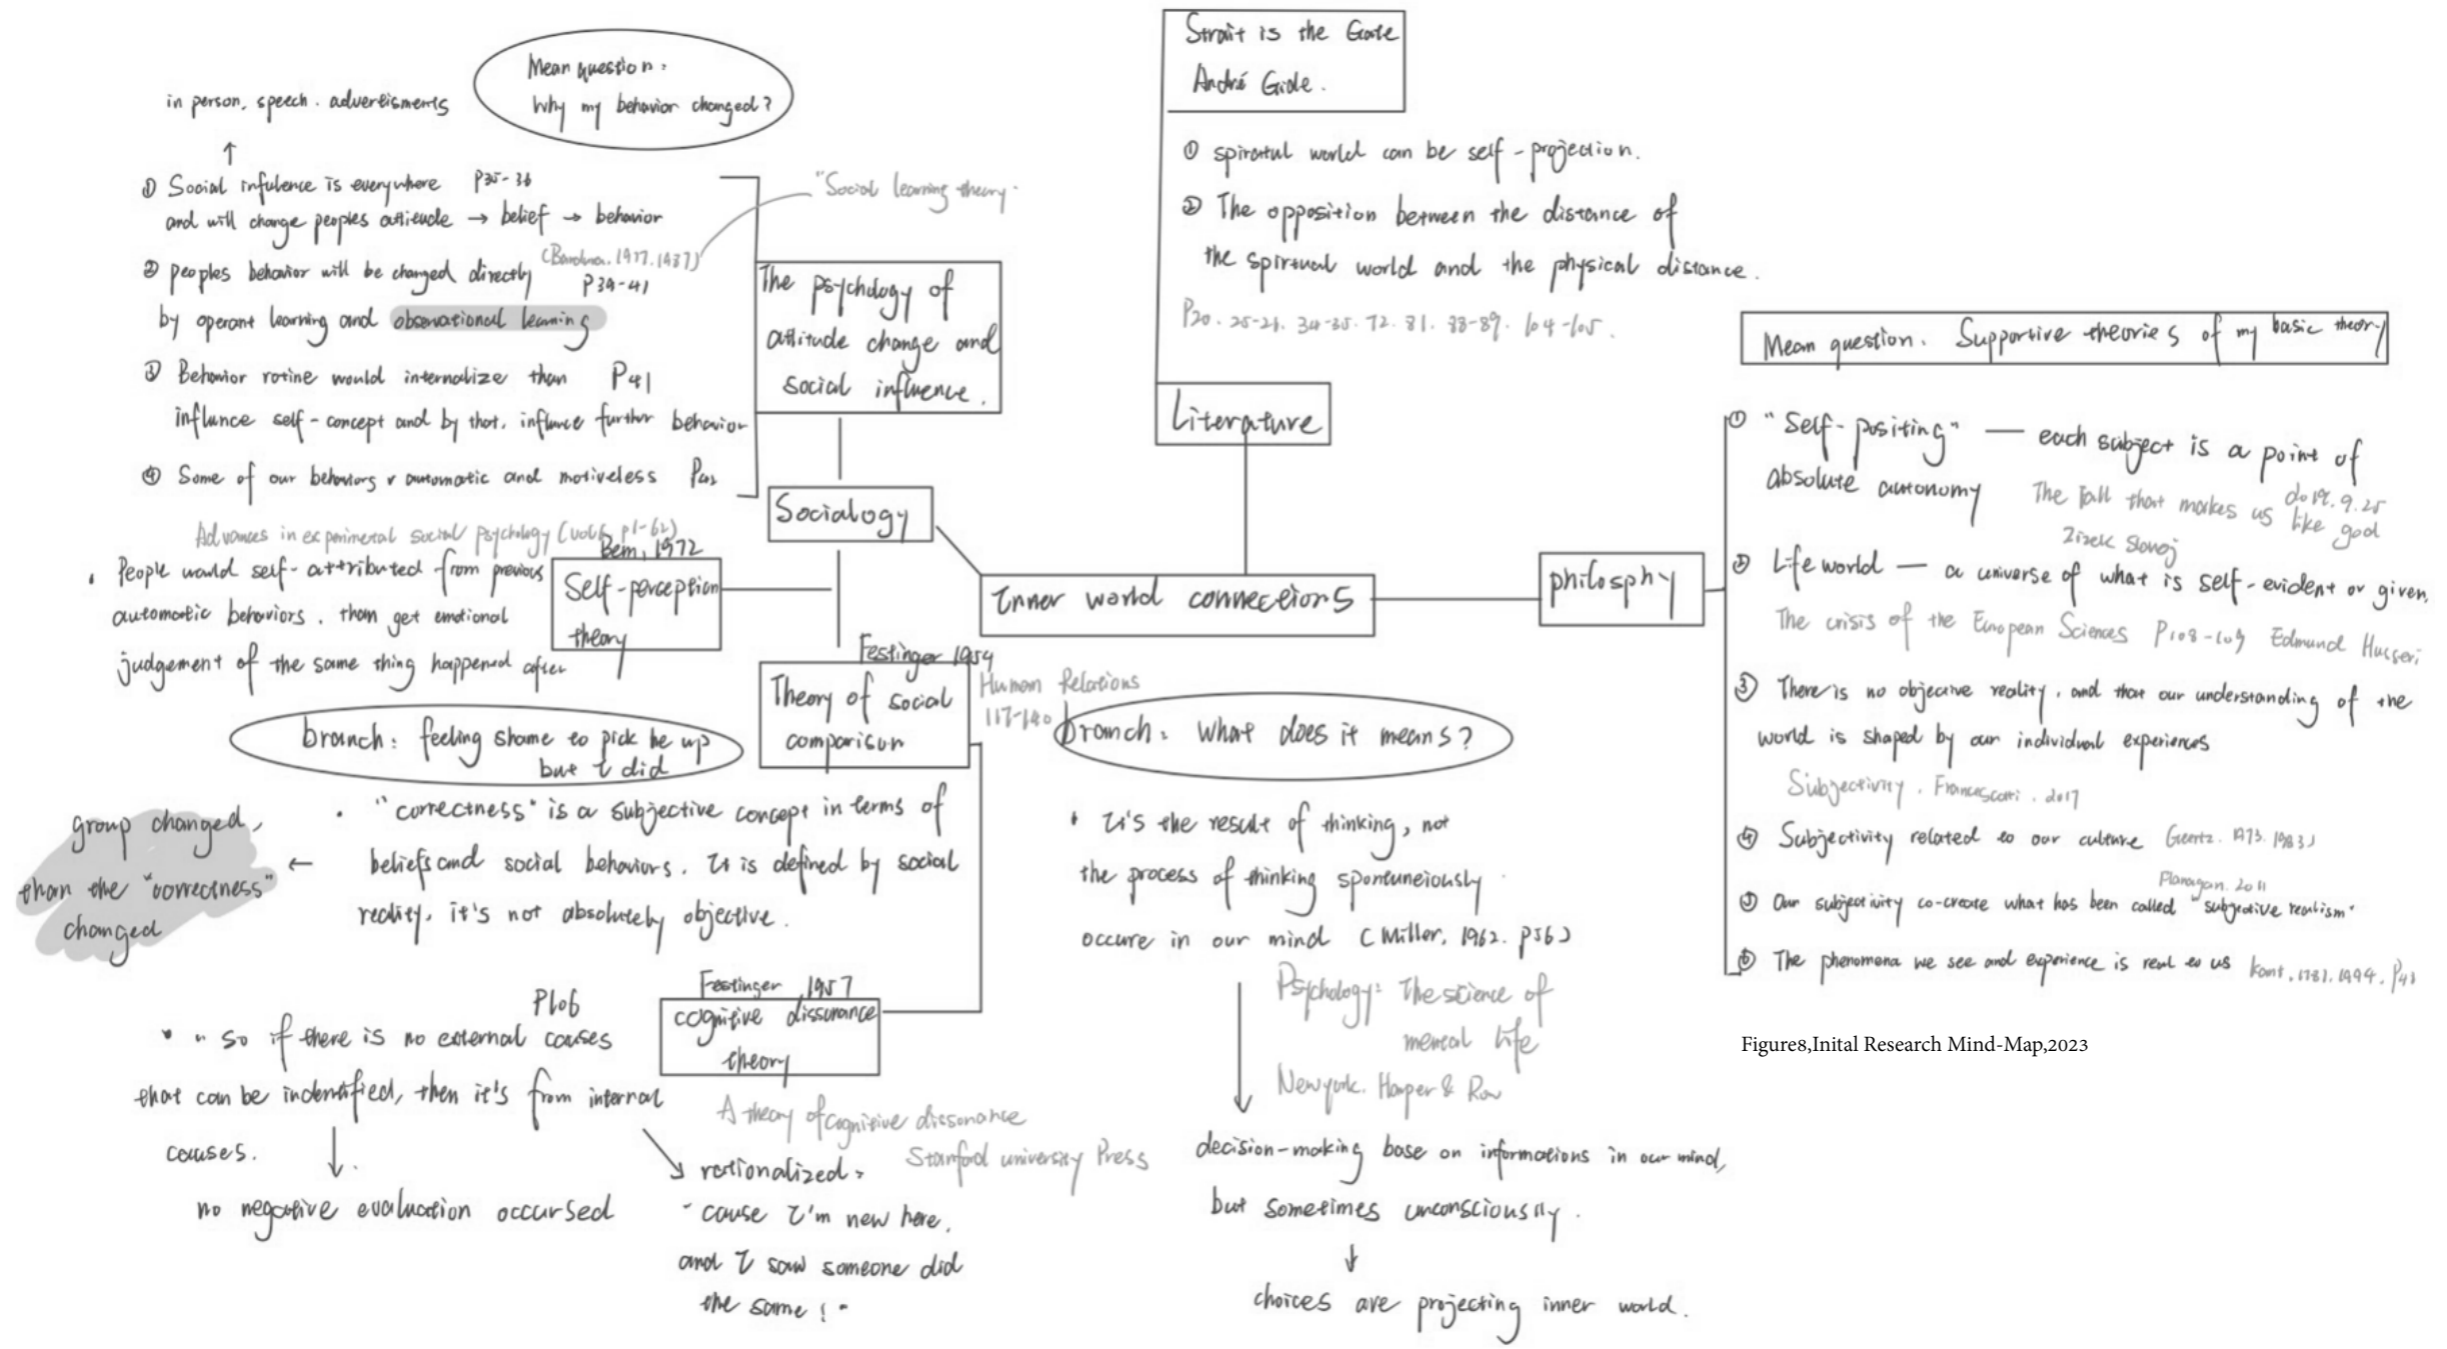 Mean question:
Why my behavior changed?
in person. speech. advertisments
① Social infulence is everywhere P35-36
and will change peoples attitude → belief → behavior
"Social learning theory.
② peoples behavior will be changed directly
P39-41
by operant learning and observational learning
③ Behavior rotine would internalize than P41
influnce self-concept and by that, influnce further behavior
④ Some of our behaviors r automatic and motiveless
The psychology of
attitude change and
social influence.
Socialogy
Advances in experimental social psychology (vol6, p1-62)
Bem, 1972
Self-perception
theory
• People would self-attributed from previous
automatic behaviors. than get emotional
judgement of the same thing happened after
branch: feeling shame to pick he up
but I did
Festinger 1954
Theory of social
comparison
Human Relations
117-140
• "correctness" is a subjective concept in terms of
beliefs and social behaviors. It is defined by social
reality, it's not absolutely objective.
←
group changed,
than the "correctness"
changed
Festinger 1957
cognitive dissonance
theory
A theory of cognitive dissonance
Stanford university Press
P106
• " so if there is no external causes
that can be indentified, then it's from internal
causes.
no negative evaluation occursed
rationalized:
"cause I'm new here,
and I saw someone did
the same!"
Strait is the Gate
André Gide.
① spiratul world can be self-projection.
② The opposition between the distance of
the spirtual world and the physical distance.
P20. 25-26. 34-35. 72. 81. 88-89. 104-105.
Literature
Inner world connections
branch: What does it means?
• It's the result of thinking, not
the process of thinking spontuneiously
occure in our mind (Miller, 1962. P56)
Psychology: The science of
mental life
Newyork. Harper & Row
decision-making base on informations in our mind,
but sometimes unconsciouslly.
choices are projecting inner world.
philosphy
Mean question. Supportive theories of my basic theory
① "Self-positing" — each subject is a point of
absolute autonomy
The Fall that makes us like god
Zizek Slavoj
② Life world — a universe of what is self-evident or given,
The crisis of the European Sciences P108-109 Edmund
③ There is no objective reality, and that our understanding of the
world is shaped by our individual experiences
Subjectivity. 2017
④ Subjectivity related to our culture Geertz. 1973. 1983)
Flanagan. 2011
⑤ Our subjectivity co-create what has been called "subjective realism"
⑥ The phenomena we see and experience is real to us Kant. 1781. 1994.
Figure8,Inital Research Mind-Map,2023